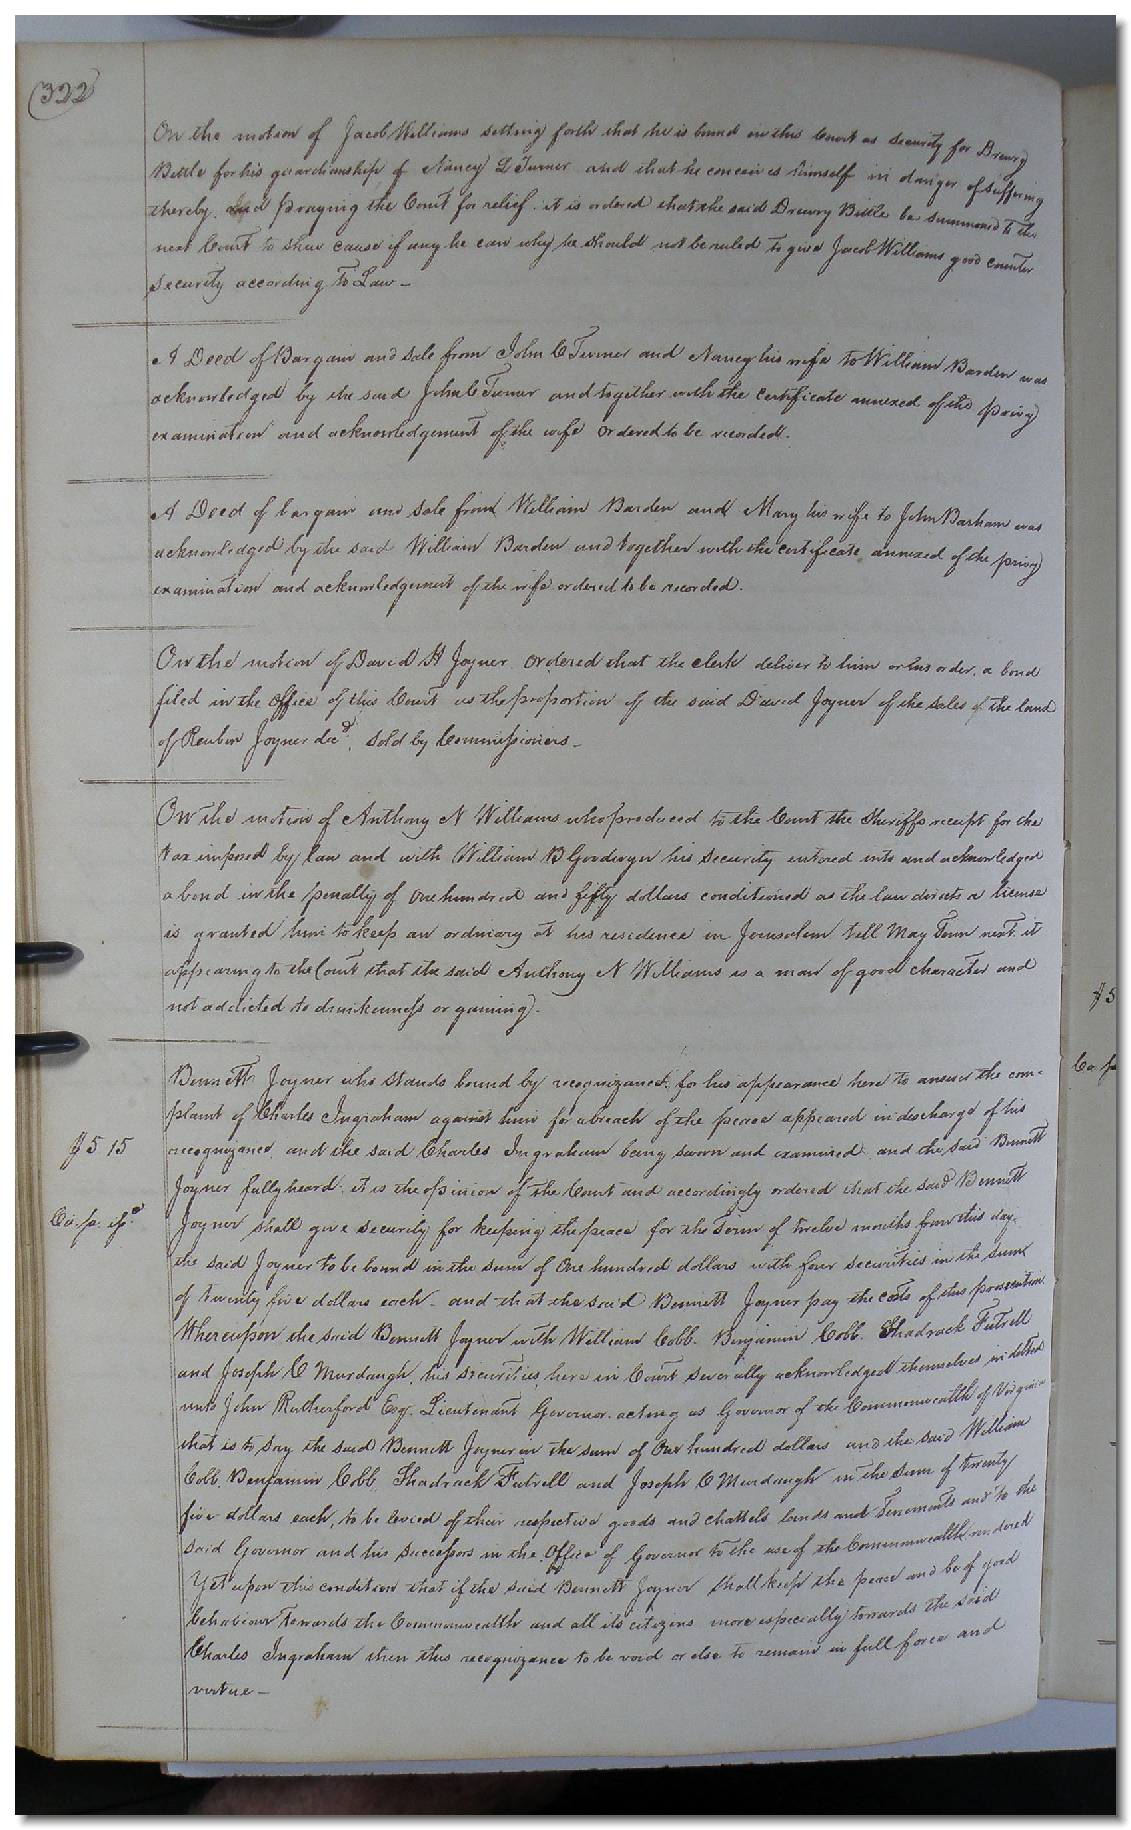 (322)
On the motion of Jacob Williams setting forth that he is bound in this Court as security for Drewry
Bittle for his guardianship of Nancy L Turner and that he conceives himself in danger of suffering
thereby. and praying the Court for relief. it is ordered that the said Drewry Bittle be summoned to the
next Court to shew cause if any he can why he should not be ruled to give Jacob Williams good counter
security according to Law—
A Deed of Bargain and sale from John C Turner and Nancy his wife to William Barden was
acknowledged by the said John C Turner and together with the certificate annexed of the privy
examination and acknowledgement of the wife ordered to be recorded.
A Deed of bargain and sale from William Barden and Mary his wife to John Barham was
acknowledged by the said William Barden and together with the certificate annexed of the privy
examination and acknowledgement of the wife ordered to be recorded.
On the motion of David H Joyner. ordered that the clerk deliver to him or his order, a bond
filed in the office of this Court as the proportion of the said David Joyner of the sales of the land
of Reuben Joyner decd, sold by Commissioners—
On the motion of Anthony N Williams who produced to the Court the Sheriffs receipt for the
tax imposed by law and with William B Goodwyn his security entered into and acknowledged
a bond in the penalty of one hundred and fifty dollars conditioned as the law directs a license
is granted him to keep an ordinary at his residence in Jerusalem till May Term next. it
appearing to the Court that the said Anthony N Williams is a man of good character and
not addicted to drunkenness or gaming.
Bennett Joyner who stands bound by recognizance, for his appearance here to answer the com-
plaint of Charles Ingraham against him for a breach of the peace appeared in discharge of his
$5 15
recognizance. and the said Charles Ingraham being sworn and examined. and the said Bennett
Joyner fully heard. it is the opinion of the Court and accordingly ordered that the said Bennett
Joyner shall give security for keeping the peace for the term of twelve months from this day.
the said Joyner to be bound in the sum of One hundred dollars with four securities in the sum
of twenty five dollars each— and that the said Bennett Joyner pay the costs of this prosecution.
Whereupon the said Bennett Joyner with William Cobb. Benjamin Cobb. Shadrack Futrell
and Joseph C Murdaugh, his securities, here in Court severally acknowledged themselves indebted
unto John Rutherford Esq. Lieutenant Governor. acting as Governor of the Commonwealth of Virginia
that is to say the said Bennett Joyner in the sum of One hundred dollars and the said William
Cobb, Benjamin Cobb, Shadrack Futrell and Joseph C Murdaugh in the sum of twenty
five dollars each, to be levied of their respective goods and chattels lands and tenements and to the
said Governor and his successors in the office of Governor to the use of the Commonwealth rendered
Yet upon this condition that if the said Bennett Joyner shall keep the peace and be of good
behaviour towards the Commonwealth and all its citizens more especially towards the said
Charles Ingraham then this recognizance to be void or else to remain in full force and
virtue—
$5